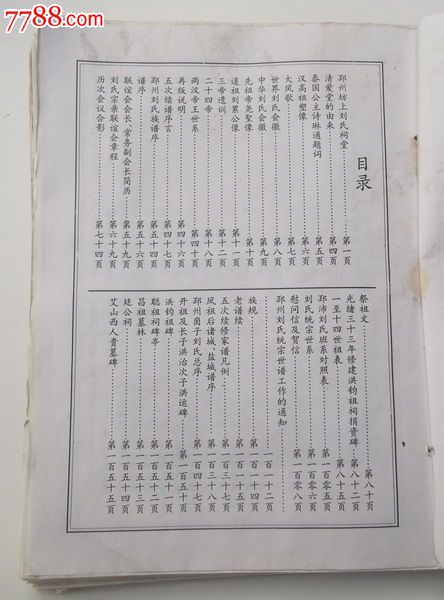 7788.com
目录
邳州坊上刘氏祠堂……第一页
清爱堂的由来……第四页
泰国公主诗琳通题词……第五页
汉高祖塑像……第六页
大风歌……第七页
世界刘氏会徽……第八页
中华刘氏会徽……第九页
先祖帝尧圣像……第十页
远祖刘累公像……第十一页
三帝遗训……第十二页
二十四帝……第十八页
两汉帝王世系……第四十页
再版说明……第四十六页
五次续谱序言……第四十七页
邳州刘氏族谱序……第五十四页
谱序……
联谊会会长、常务副会长简历……第五十九页
刘氏宗亲联谊会章程……第六十九页
历次会议合影……第七十四页
祭祖文……第八十页
光绪三十三年修建洪钧祖祠捐资碑……第八十二页
一至十四世祖表……第八十五页
邳沛刘氏班系对照表……第一百零五页
刘氏统宗世系……第一百零六页
慰问信及贺信……第一百零八页
邳州刘氏统宗世谱工作的通知……一百一十二页
族规……第一百一十四页
老谱续……
五次续修家谱凡例……第一百三十七页
凤祖后诸城、盐城谱序……第一百三十八页
邳州崮子刘氏总序……第一百四十七页
开祖及长子洪治次子洪运碑……第一百五十页
洪钧祖碑……第一百五十一页
聪祖祠碑亭……第一百五十二页
昌祖墓林……第一百五十三页
廷公祠……第一百五十四页
艾山西人贵墓碑……第一百五十五页